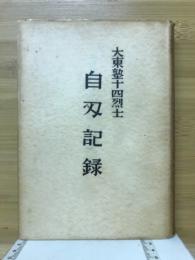 大東塾十四烈士
自刄記録